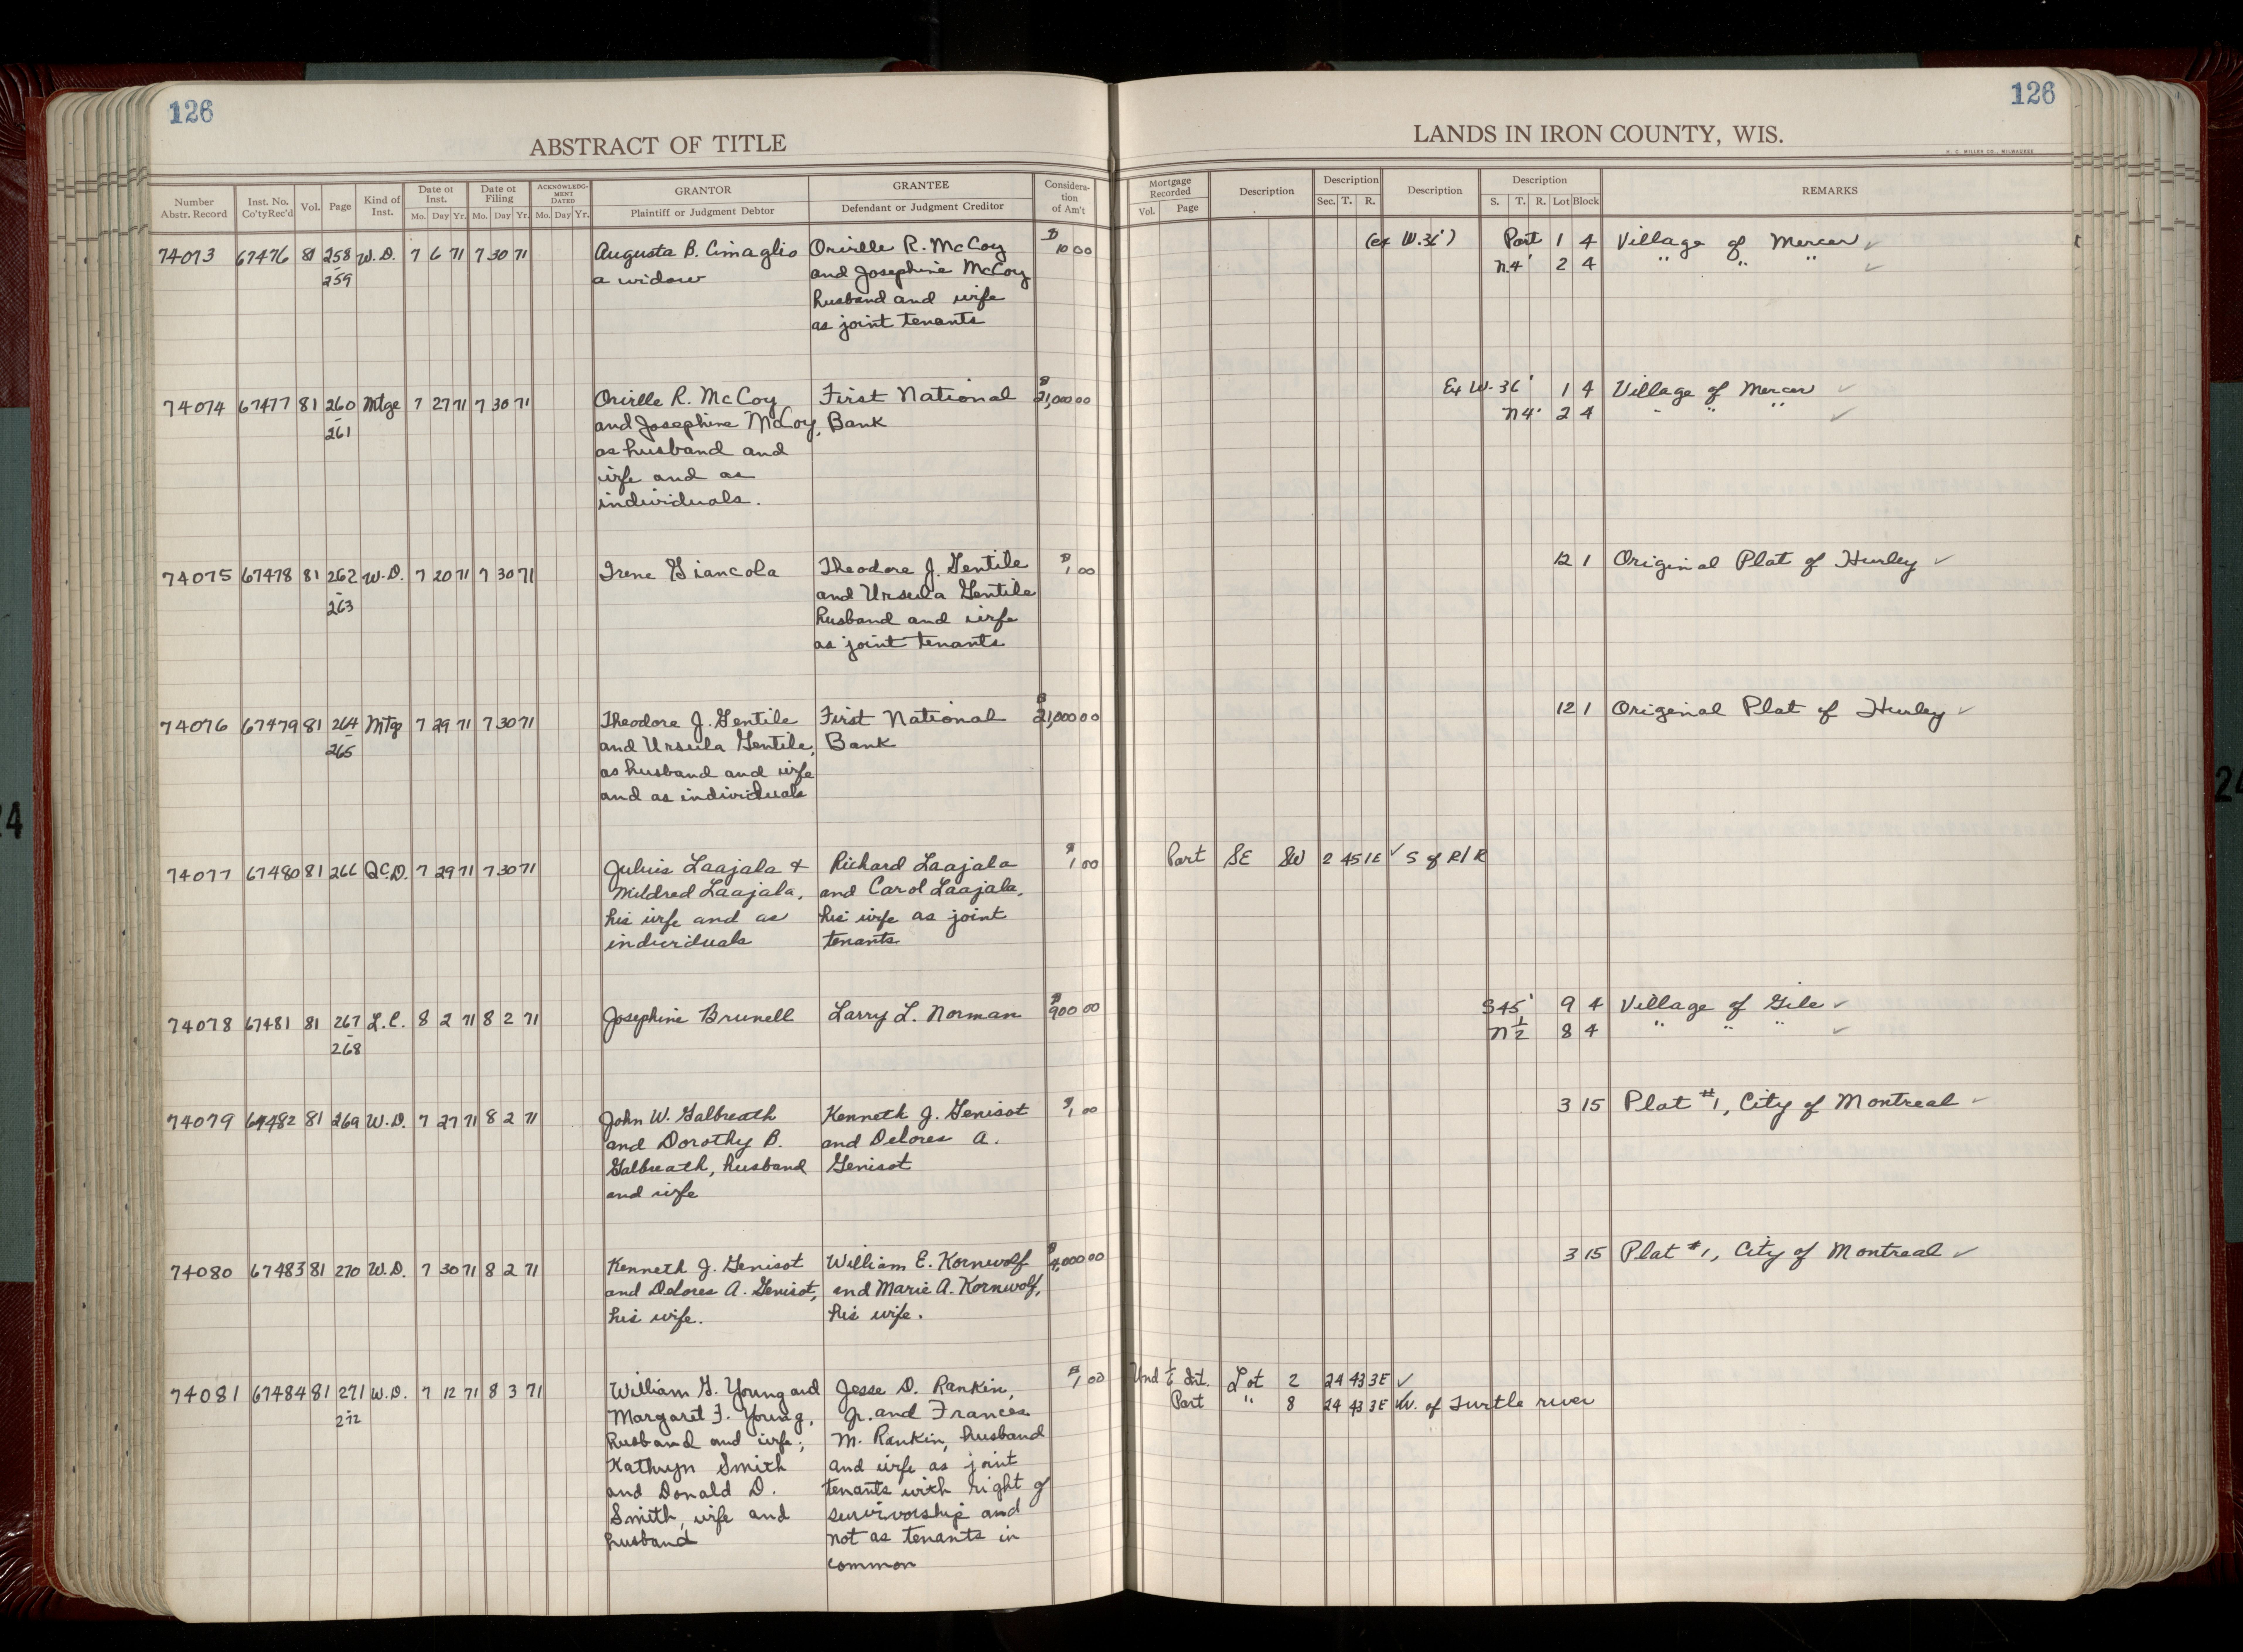 126
126
ABSTRACT OF TITLE
LANDS IN IRON COUNTY, WIS.
H. C. MILLER CO., MILWAUKEE
Number Abstr. Record | Inst. No. Co'tyRec'd | Vol. | Page | Kind of Inst. | Date of Inst. Mo. Day Yr. | Date of Filing Mo. Day Yr. | ACKNOWLEDGMENT DATED Mo. Day Yr. | GRANTOR Plaintiff or Judgment Debtor | GRANTEE Defendant or Judgment Creditor | Consideration of Am't | Mortgage Recorded Vol. Page | Description | Description Sec. T. R. | Description | Description S. T. R. Lot Block | REMARKS
74073 67476 81 258 W.D. 7 6 71 7 30 71 Augusta B. Cimaglio Orville R. McCoy $10 00 (ex W.36') Part 1 4 Village of Mercer ✓
- 259 a widow and Josephine McCoy N4' 2 4 " " " ✓
husband and wife
as joint tenants
74074 67477 81 260 Mtge 7 27 71 7 30 71 Orville R. McCoy First National $21,000 00 Ex W-36' 1 4 Village of Mercer ✓
- 261 and Josephine McCoy, Bank N4' 2 4 " " " ✓
as husband and
wife and as
individuals.
74075 67478 81 262 W.D. 7 20 71 7 30 71 Irene Giancola Theodore J. Gentile $1 00 12 1 Original Plat of Hurley ✓
- 263 and Ursula Gentile
husband and wife
as joint tenants
74076 67479 81 264 Mtg 7 29 71 7 30 71 Theodore J. Gentile First National $21,000 00 12 1 Original Plat of Hurley ✓
- 265 and Ursula Gentile, Bank
as husband and wife
and as individuals
74077 67480 81 266 QC.D. 7 29 71 7 30 71 Julius Laajala & Richard Laajala $1 00 Part SE SW 2 45 1E ✓ S of R/R
Mildred Laajala, and Carol Laajala,
his wife and as his wife as joint
individuals tenants
74078 67481 81 267 L.C. 8 2 71 8 2 71 Josephine Brunell Larry L. Norman $900 00 S45' 9 4 Village of Gile ✓
- 268 N½ 8 4 " " " ✓
74079 67482 81 269 W.D. 7 27 71 8 2 71 John W. Galbreath Kenneth J. Genisot $1 00 3 15 Plat #1, City of Montreal ✓
and Dorothy B. and Delores A.
Galbreath, husband Genisot
and wife
74080 67483 81 270 W.D. 7 30 71 8 2 71 Kenneth J. Genisot William E. Kornwolf $4,000 00 3 15 Plat #1, City of Montreal ✓
and Delores A. Genisot, and Marie A. Kornwolf,
his wife. his wife.
74081 67484 81 271 W.D. 7 12 71 8 3 71 William G. Young and Jesse D. Rankin, $1 00 Und Int. Lot 2 24 43 3E ✓
- 272 Margaret F. Young, Jr. and Frances Part " 8 24 43 3E W. of Turtle river
husband and wife; M. Rankin, husband
Kathryn Smith and wife as joint
and Donald D. tenants with right of
Smith, wife and survivorship and
husband not as tenants in
common